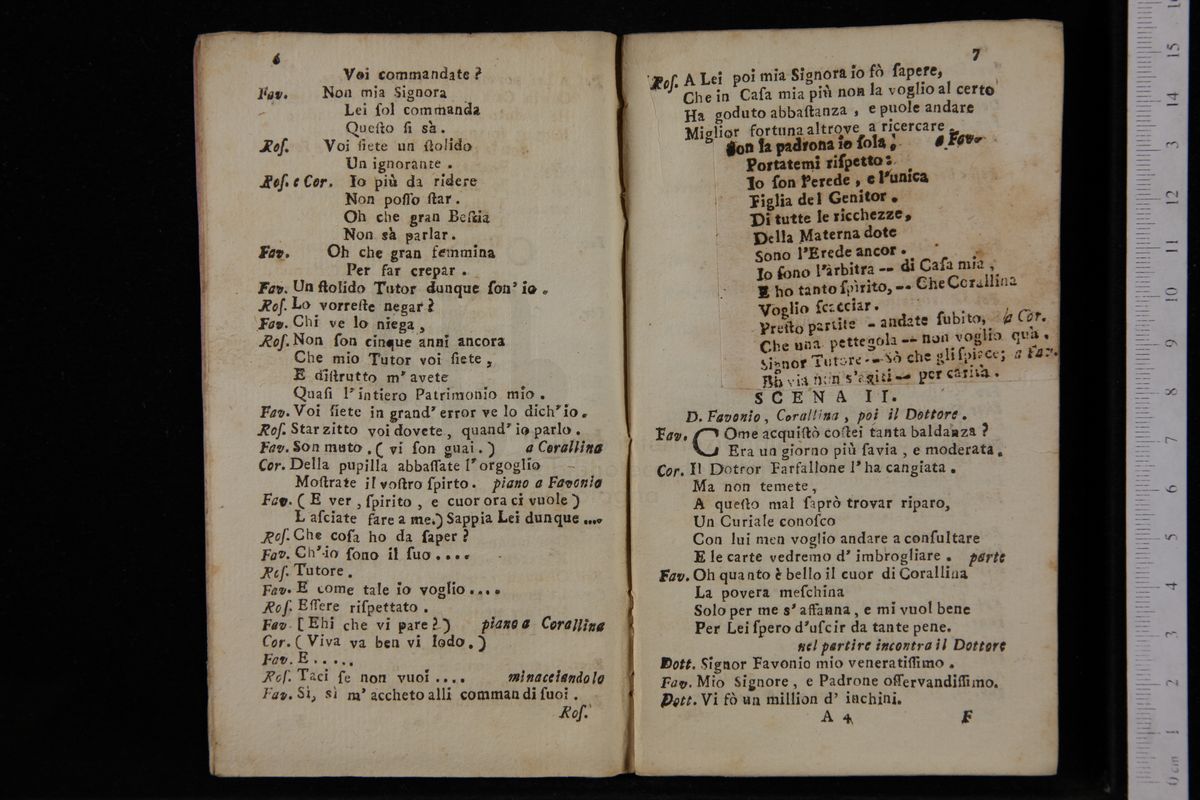 6
Voi commandate?
Fav. Non mia Signora
Lei ſol commanda
Queſto ſi sà.
Roſ. Voi ſiete un ſtolido
Un ignorante.
Roſ. e Cor. Io più da ridere
Non poſſo ſtar.
Oh che gran Beſtia
Non sà parlar.
Fav. Oh che gran femmina
Per far crepar.
Fav. Un ſtolido Tutor dunque ſon' io.
Roſ. Lo vorreſte negar?
Fav. Chi ve lo niega,
Roſ. Non ſon cinque anni ancora
Che mio Tutor voi ſiete,
E diſtrutto m' avete
Quaſi l' intiero Patrimonio mio.
Fav. Voi ſiete in grand' error ve lo dich' io.
Roſ. Star zitto voi dovete, quand' io parlo.
Fav. Son muto. ( vi ſon guai. ) a Corallina
Cor. Della pupilla abbaſſate l' orgoglio
Moſtrate il voſtro ſpirto. piano a Favonio
Fav. ( E ver, ſpirito, e cuor ora ci vuole )
L aſciate fare a me.) Sappia Lei dunque ....
Roſ. Che coſa ho da ſaper?
Fav. Ch' io ſono il ſuo ....
Roſ. Tutore.
Fav. E come tale io voglio ....
Roſ. Eſſere riſpettato.
Fav. [ Ehi che vi pare? ) piano a Corallina
Cor. ( Viva va ben vi lodo. )
Fav. E .....
Roſ. Taci ſe non vuoi .... minacciandolo
Fav. Si, sì m' accheto alli commandi ſuoi.
Roſ.
7
Roſ. A Lei poi mia Signora io fò ſapere,
Che in Caſa mia più non la voglio al certo
Ha goduto abbaſtanza, e puole andare
Miglior fortuna altrove a ricercare.
Son la padrona io ſola, a Fav.
Portatemi riſpetto:
Io ſon l'erede, e l'unica
Figlia del Genitor.
Di tutte le ricchezze,
Della Materna dote
Sono l'Erede ancor.
Io ſono l'àrbitra -- di Caſa mia,
E ho tanto ſpirito, -- Che Corallina
Voglio ſcacciar.
Preſto partite - andate ſubito, a Cor.
Che una pettegola -- non voglio quà.
Signor Tutore -- Sò che gli ſpiace; a Fav.
Eh via non s'agiti -- per carità.
SCENA II.
D. Favonio, Corallina, poi il Dottore.
Fav. COme acquiſtò coſtei tanta baldanza?
Era un giorno più ſavia, e moderata.
Cor. Il Dottor Farfallone l' ha cangiata.
Ma non temete,
A queſto mal ſaprò trovar riparo,
Un Curiale conoſco
Con lui men voglio andare a conſultare
E le carte vedremo d' imbrogliare. parte
Fav. Oh quanto è bello il cuor di Corallina
La povera meſchina
Solo per me s' affanna, e mi vuol bene
Per Lei ſpero d'uſcir da tante pene.
nel partire incontra il Dottore
Dott. Signor Favonio mio veneratiſſimo.
Fav. Mio Signore, e Padrone oſſervandiſſimo.
Dott. Vi fò un million d' inchini.
A 4 F
0 cm 1 2 3 4 5 6 7 8 9 10 11 12 13 14 15 16